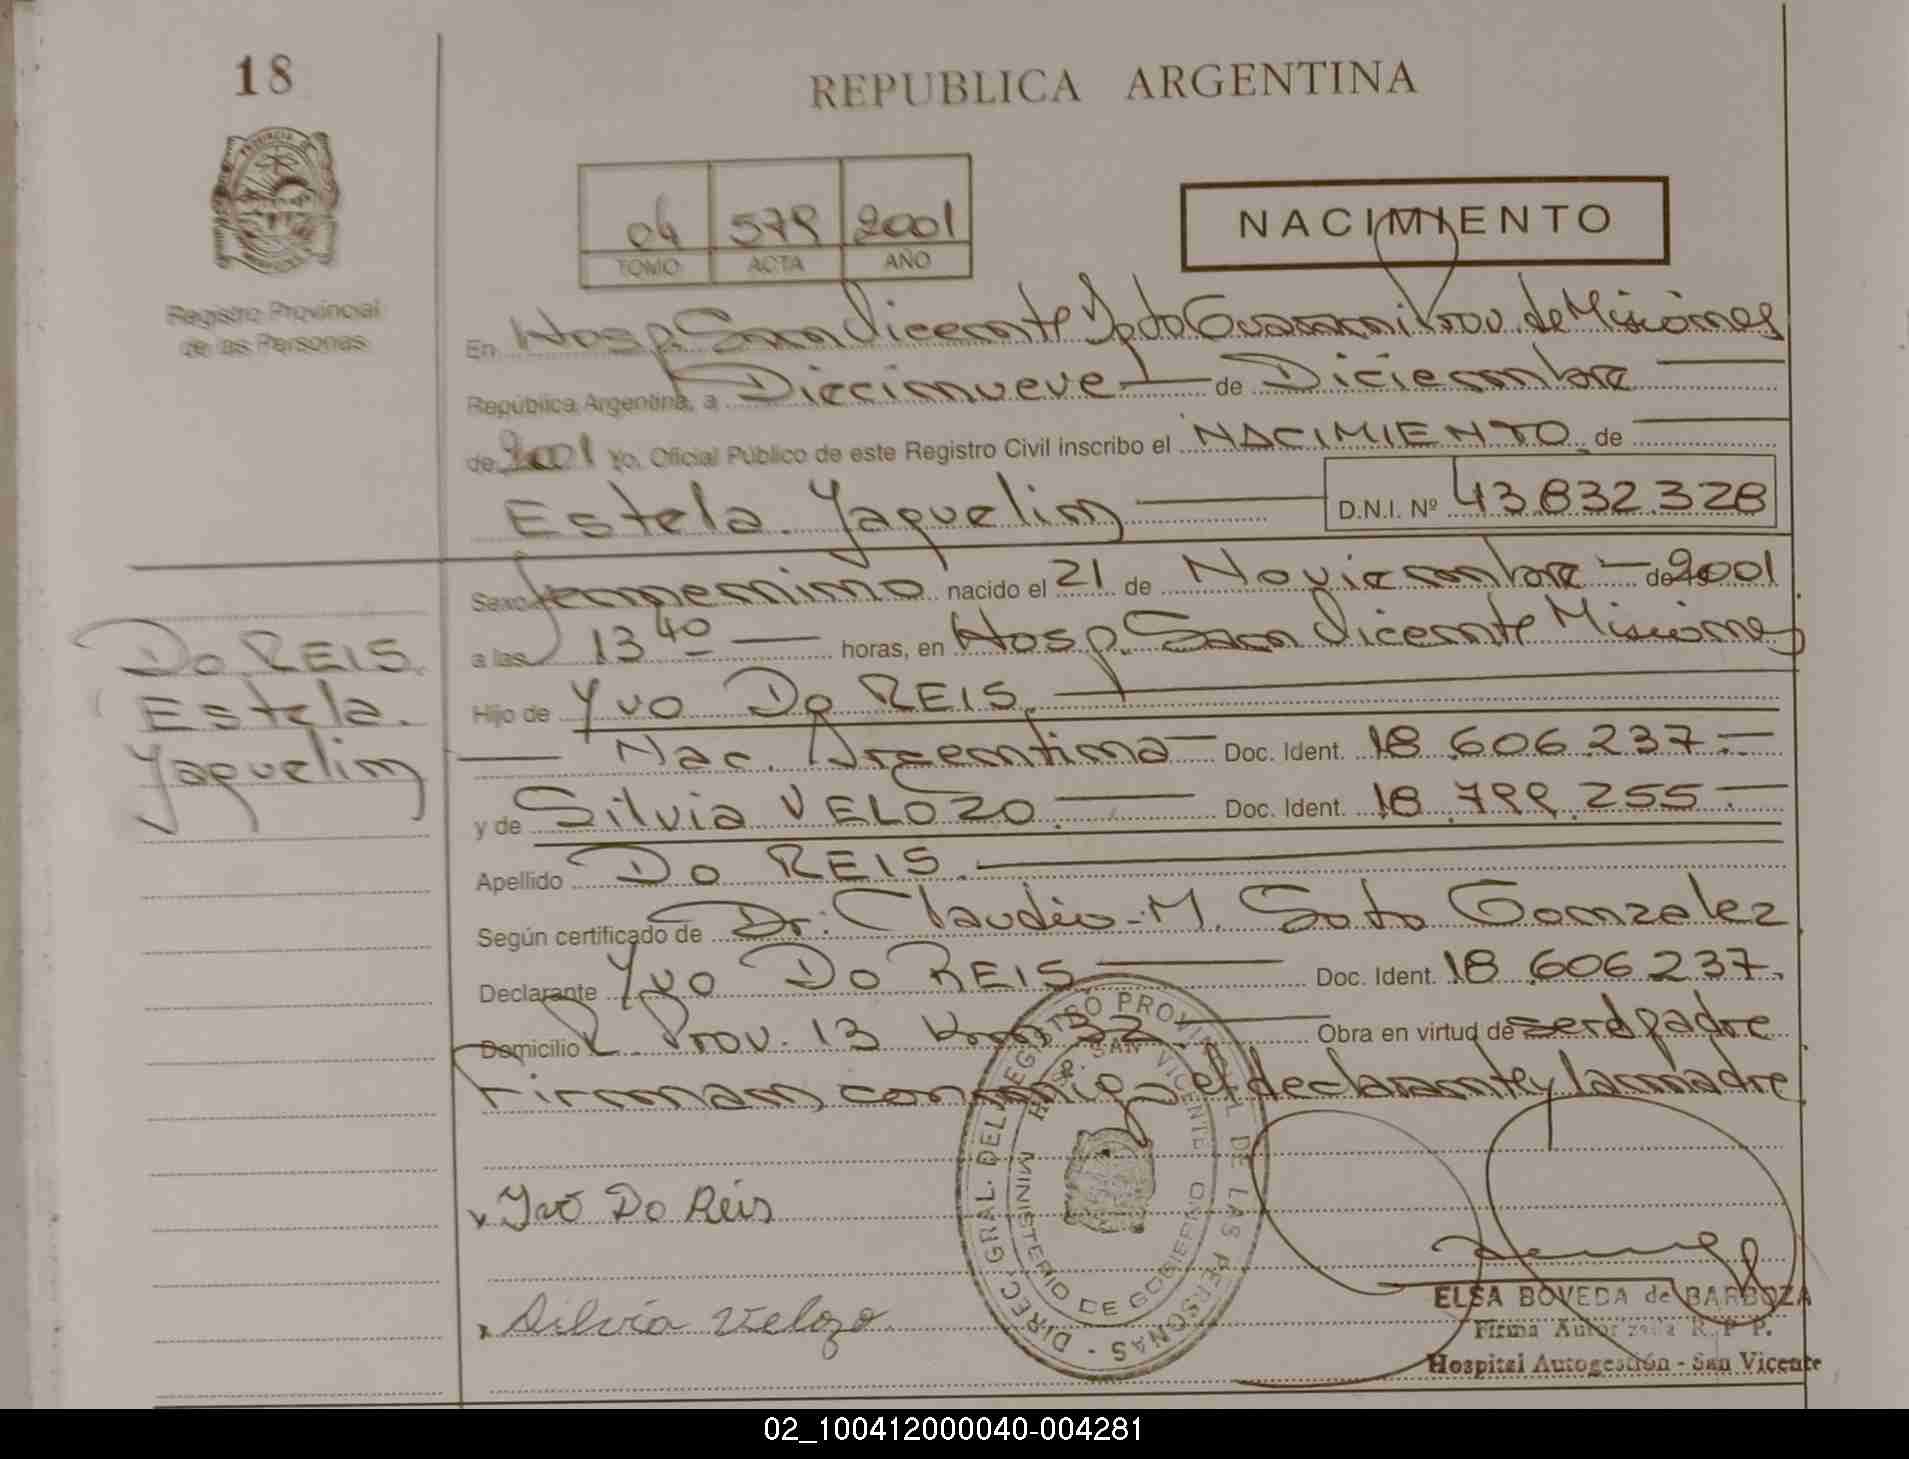 18
REPUBLICA ARGENTINA
04 579 2001
TOMO ACTA AÑO
NACIMIENTO
Registro Provincial
de las Personas
En Hosp. San Vicente Dpto Guarani Prov. de Misiones
República Argentina, a Diecinueve de Diciembre
de 2001 Yo, Oficial Público de este Registro Civil inscribo el NACIMIENTO de
Estela Yaquelin D.N.I. Nº 43.832.328
Sexo femenino nacido el 21 de Noviembre de 2001
a las 13 40 horas, en Hosp. San Vicente Misiones
Do REIS
Estela
Yaquelin
Hijo de Yvo Do REIS
Nac. Argentina Doc. Ident. 18.606.237.
y de Silvia VELOZO. Doc. Ident. 18.799.255.
Apellido Do REIS.
Según certificado de Dr: Claudio M. Soto Gonzalez
Declarante Yvo Do REIS Doc. Ident. 18.606.237.
Domicilio R. Prov. 13 Km 32 Obra en virtud de ser el padre
Firman conmigo el declarante y la madre
Yvo Do Reis
Silvia Velozo
DIREC. GRAL. DEL REGISTRO PROVINCIAL DE LAS PERSONAS -
HOSP. SAN VICENTE
MINISTERIO DE GOBIERNO
ELSA BOVEDA de BARBOZA
Firma Autorizada R. P. P.
Hospital Autogestión - San Vicente
02_100412000040-004281